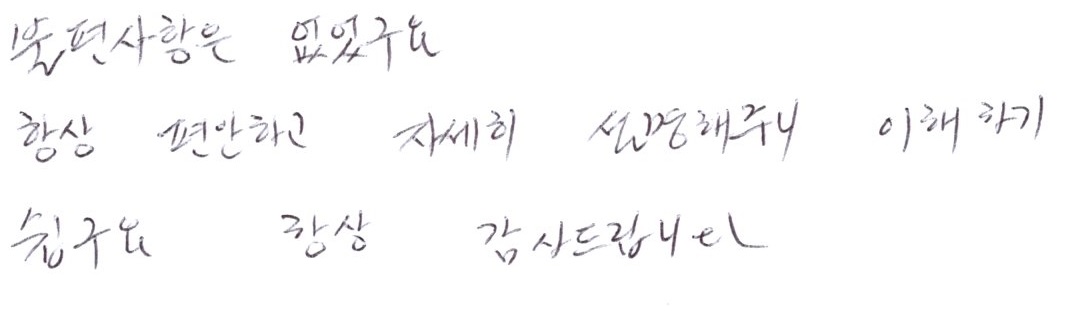 불편사항은 없었구요
항상 편안하고 자세히 설명해주니 이해하기
쉽구요 항상 감사드립니다